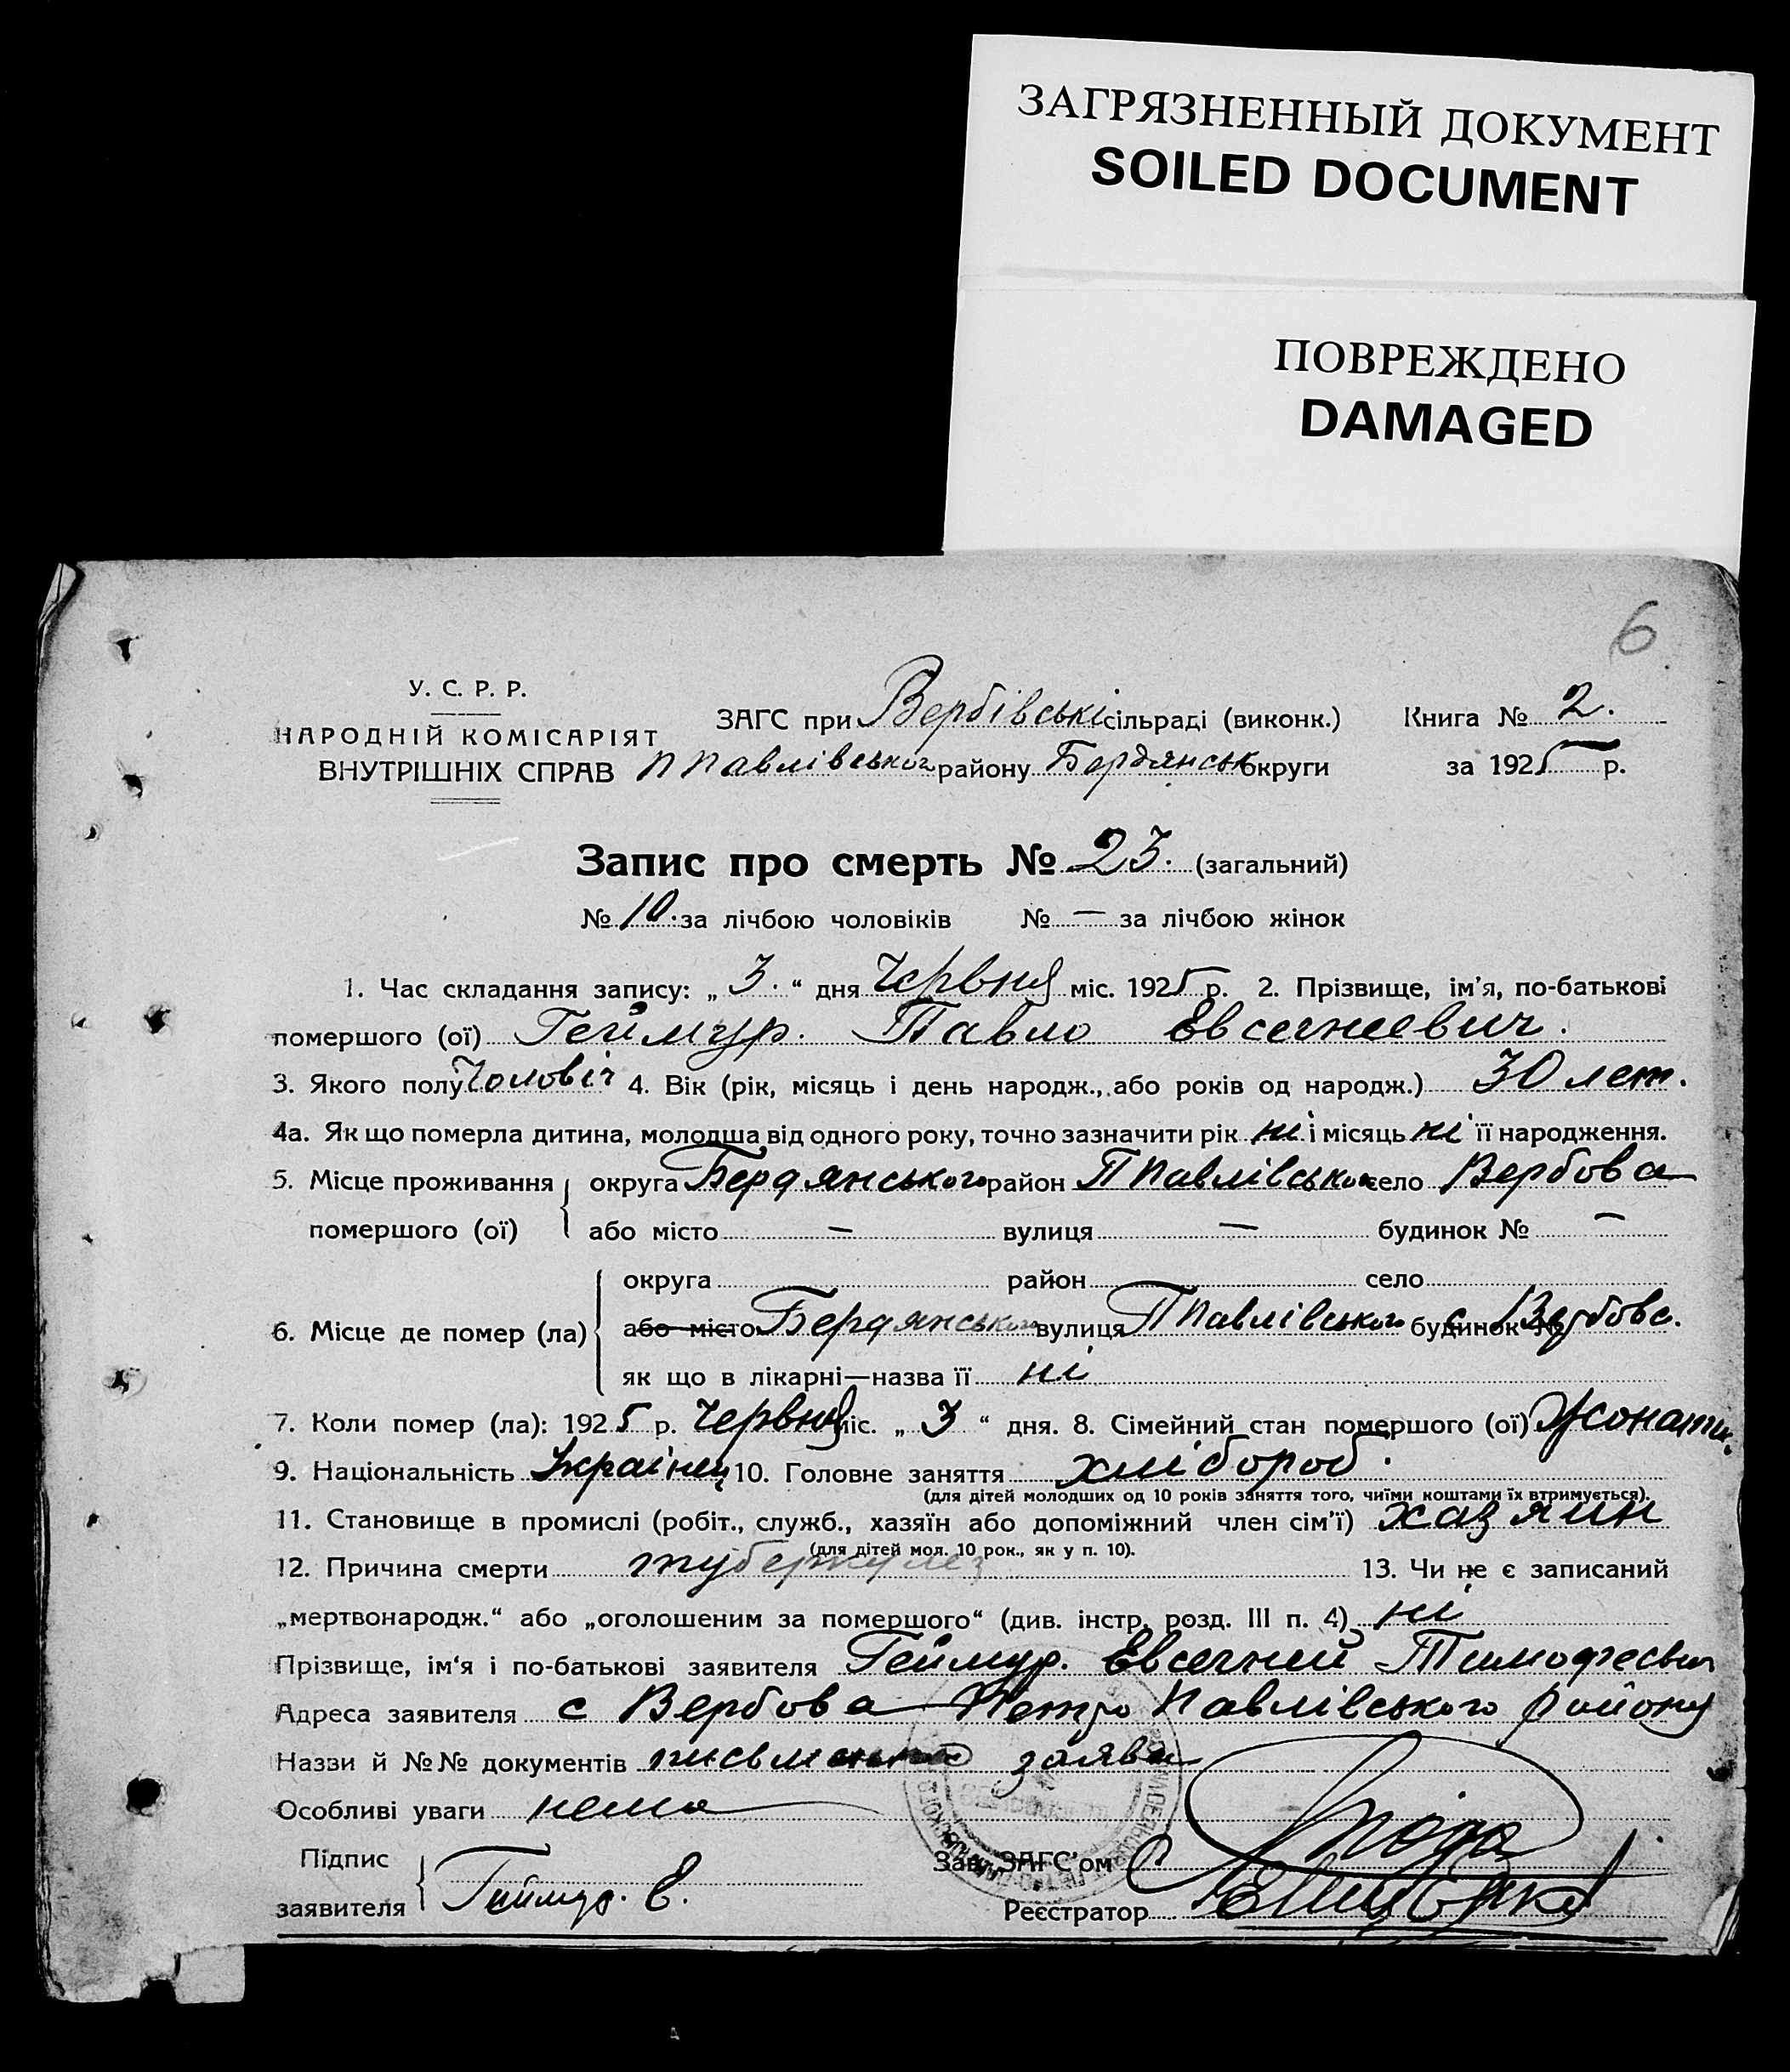 ЗАГРЯЗНЕННЫЙ ДОКУМЕНТ
SOILED DOCUMENT
ПОВРЕЖДЕНО
DAMAGED
6
У. С. Р. Р.
НАРОДНІЙ КОМІСАРІЯТ
ВНУТРІШНІХ СПРАВ
ЗАГС при Вербівські сільраді (виконк.) Книга № 2.
П Павлівського району Бердянськ округи за 1925 р.
Запис про смерть № 23. (загальний)
№ 10. за лічбою чоловіків № — за лічбою жінок
1. Час складання запису: „ 3. “ дня Червня міс. 1925 р. 2. Прізвище, ім'я, по-батькові
помершого (ої) Геймур. Павло Евсегнеевич.
3. Якого полу Чоловіч 4. Вік (рік, місяць і день народж., або років од народж.) 30 лет.
4а. Як що померла дитина, молодша від одного року, точно зазначити рік ні і місяць ні її народження.
5. Місце проживання округа Бердянського район П Павлівського село Вербова
помершого (ої) або місто — вулиця — будинок № —
округа район село
6. Місце де помер (ла) або місто Бердянського вулиця П Павлівського будинок № с. Вербова.
як що в лікарні—назва її ні
7. Коли помер (ла): 1925 р. Червня міс. „ 3 “ дня. 8. Сімейний стан помершого (ої) Жонати
9. Національність Українец 10. Головне заняття хлібороб.
(для дітей молодших од 10 років заняття того, чиїми коштами їх втримується).
11. Становище в промислі (робіт., служб., хазяїн або допоміжний член сім'ї) хазяин
(для дітей мол. 10 рок., як у п. 10).
12. Причина смерти туберкулез 13. Чи не є записаний
„мертвонародж.“ або „оголошеним за помершого“ (див. інстр. розд. III п. 4) ні
Прізвище, ім'я і по-батькові заявителя Геймур. Евсегней Тимофеевич
Адреса заявителя с Вербова Петро Павлівського району
Наззи й №№ документів заява
Особливі уваги нема
Підпис
заявителя Геймур. Е.
Зав. ЗАГС'ом
Реєстратор